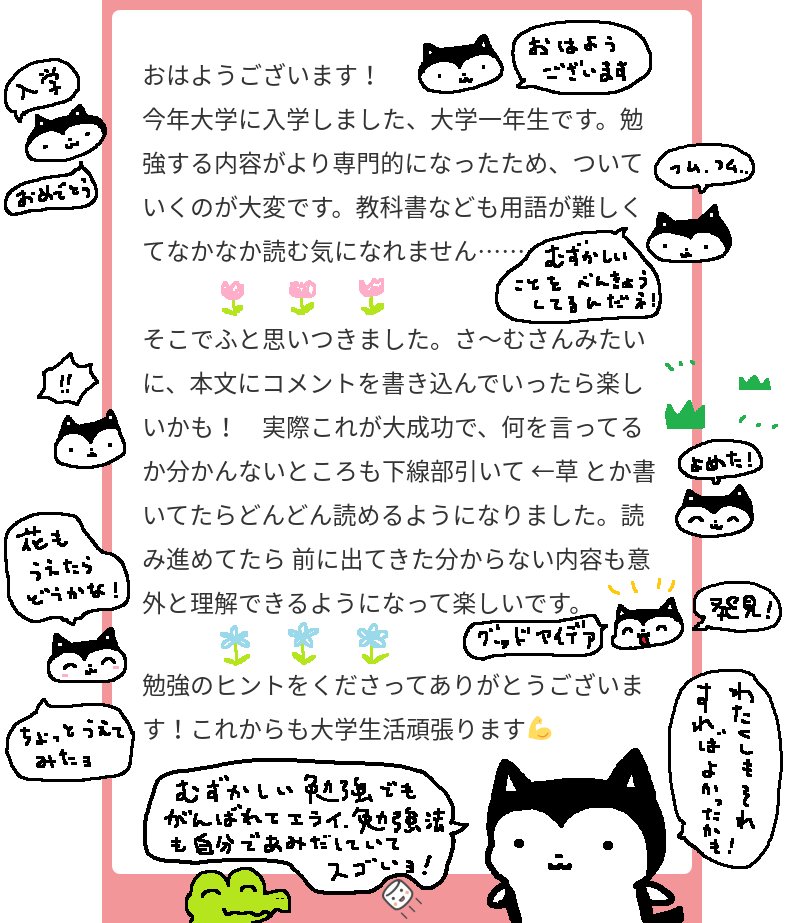 おはよう
ございます
入学
おめでとう
おはようございます！
今年大学に入学しました、大学一年生です。勉
強する内容がより専門的になったため、ついて
いくのが大変です。教科書なども用語が難しく
てなかなか読む気になれません……
フム、フム..
むずかしい
ことを べんきょう
してるんだネ!
そこでふと思いつきました。さ〜むさんみたい
に、本文にコメントを書き込んでいったら楽し
いかも！　実際これが大成功で、何を言ってる
か分かんないところも下線部引いて ←草 とか書
いてたらどんどん読めるようになりました。読
み進めてたら 前に出てきた分からない内容も意
外と理解できるようになって楽しいです。
!!
よめた!
花も
うえたら
どうかな!
発見!
グッドアイデア
勉強のヒントをくださってありがとうございま
す！これからも大学生活頑張ります💪
ちょっと うえて
みたョ
わたくしもそれ
すればよかったかも!
むずかしい 勉強でも
がんばれてエライ、勉強法
も自分であみだしていて
スゴいョ!